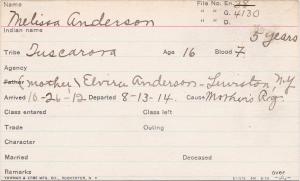 Name File No. En. 38
Melissa Anderson " " G. 4130
Indian name " " O.
5 years
Tribe Tuscarora Age 16 Blood 7.
Agency
Father (mother) Elvira Anderson - Lewiston, N.Y
Arrived 10-26-12 Departed 8-13-14. Cause Mother's Rq.
Class entered Class left
Trade Outing
Character
Married Deceased
Remarks over
YAWMAN & ERBE MFG. CO., ROCHESTER, N. Y.